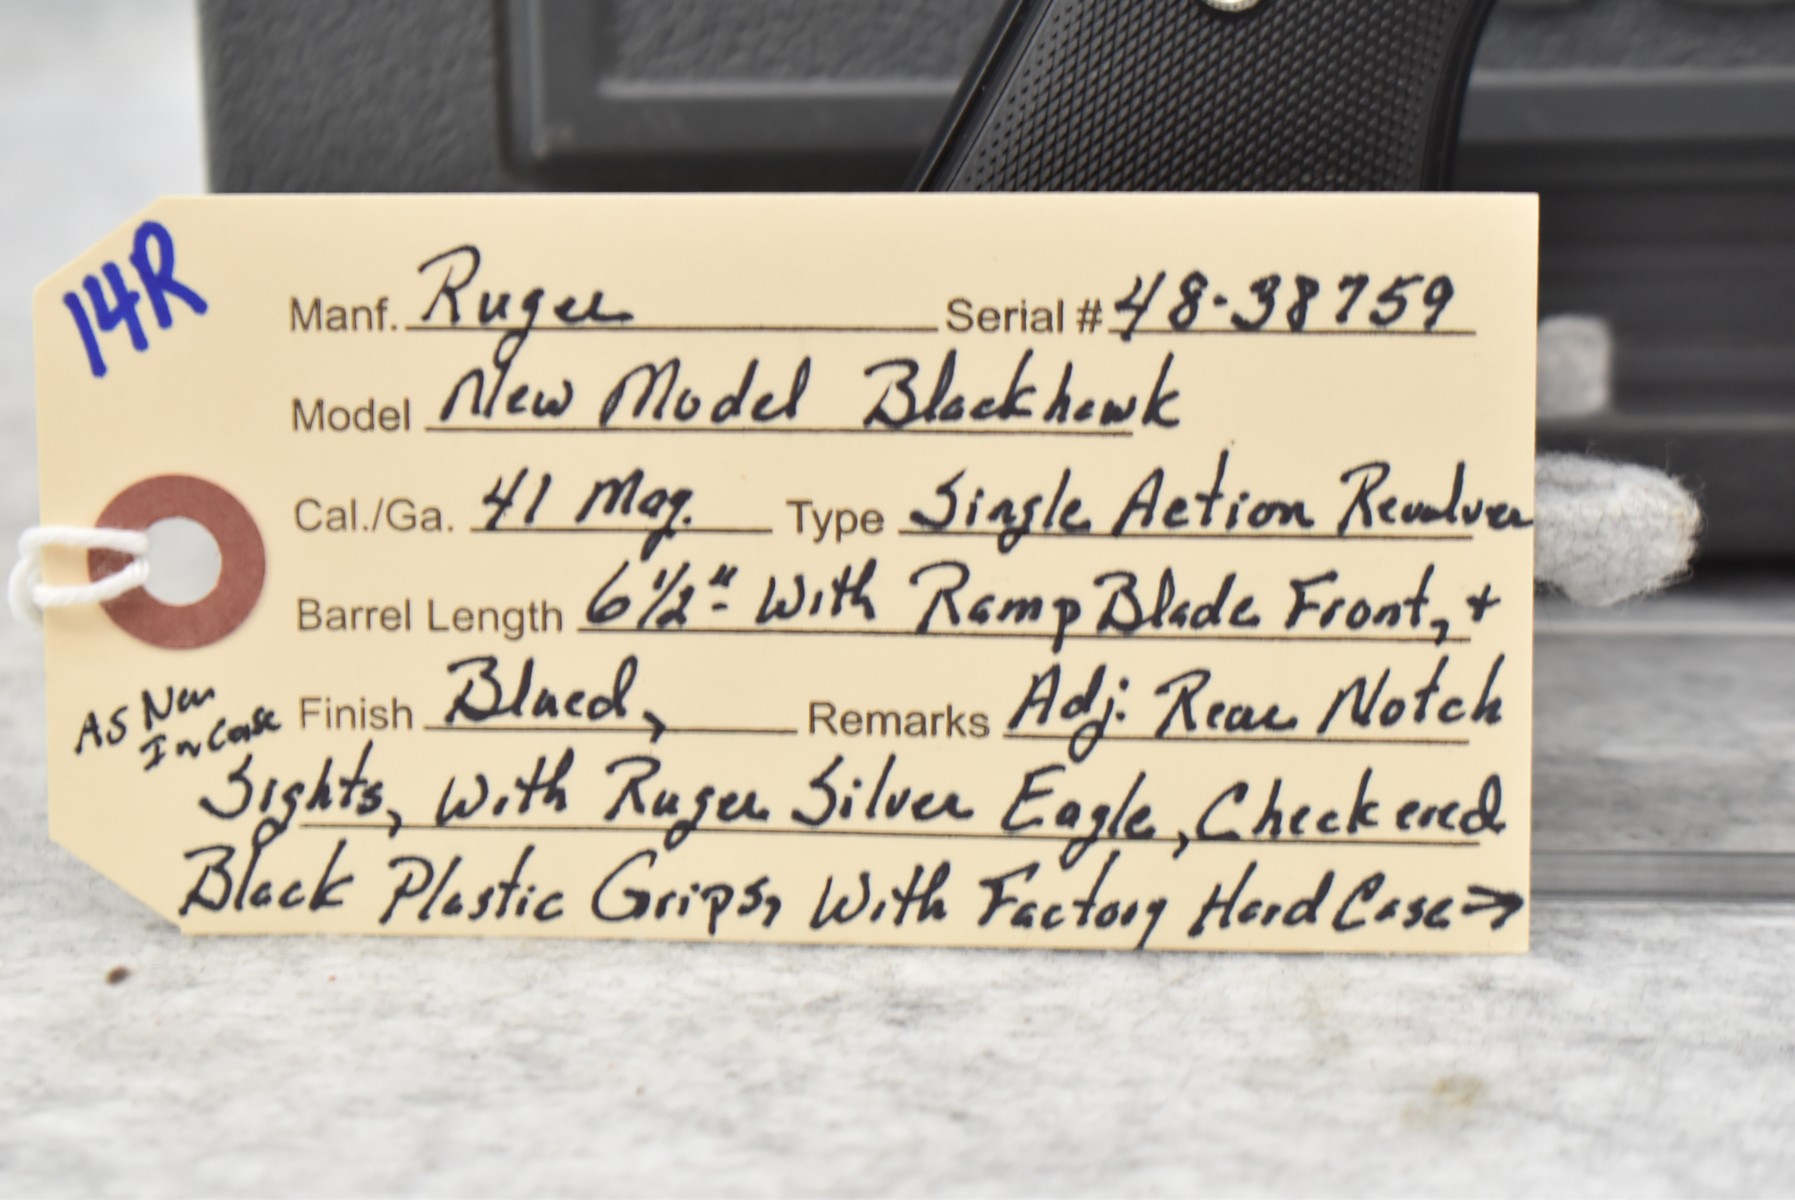 14R
Manf. Ruger Serial # 48-38759
Model New Model Blackhawk
Cal./Ga. 41 Mag. Type Single Action Revolver
Barrel Length 6 1/2" With Ramp Blade Front, +
As New
In Case
Finish Blued, Remarks Adj. Rear Notch
Sights, With Ruger Silver Eagle, Checkered
Black Plastic Grips, With Factory Hard Case →